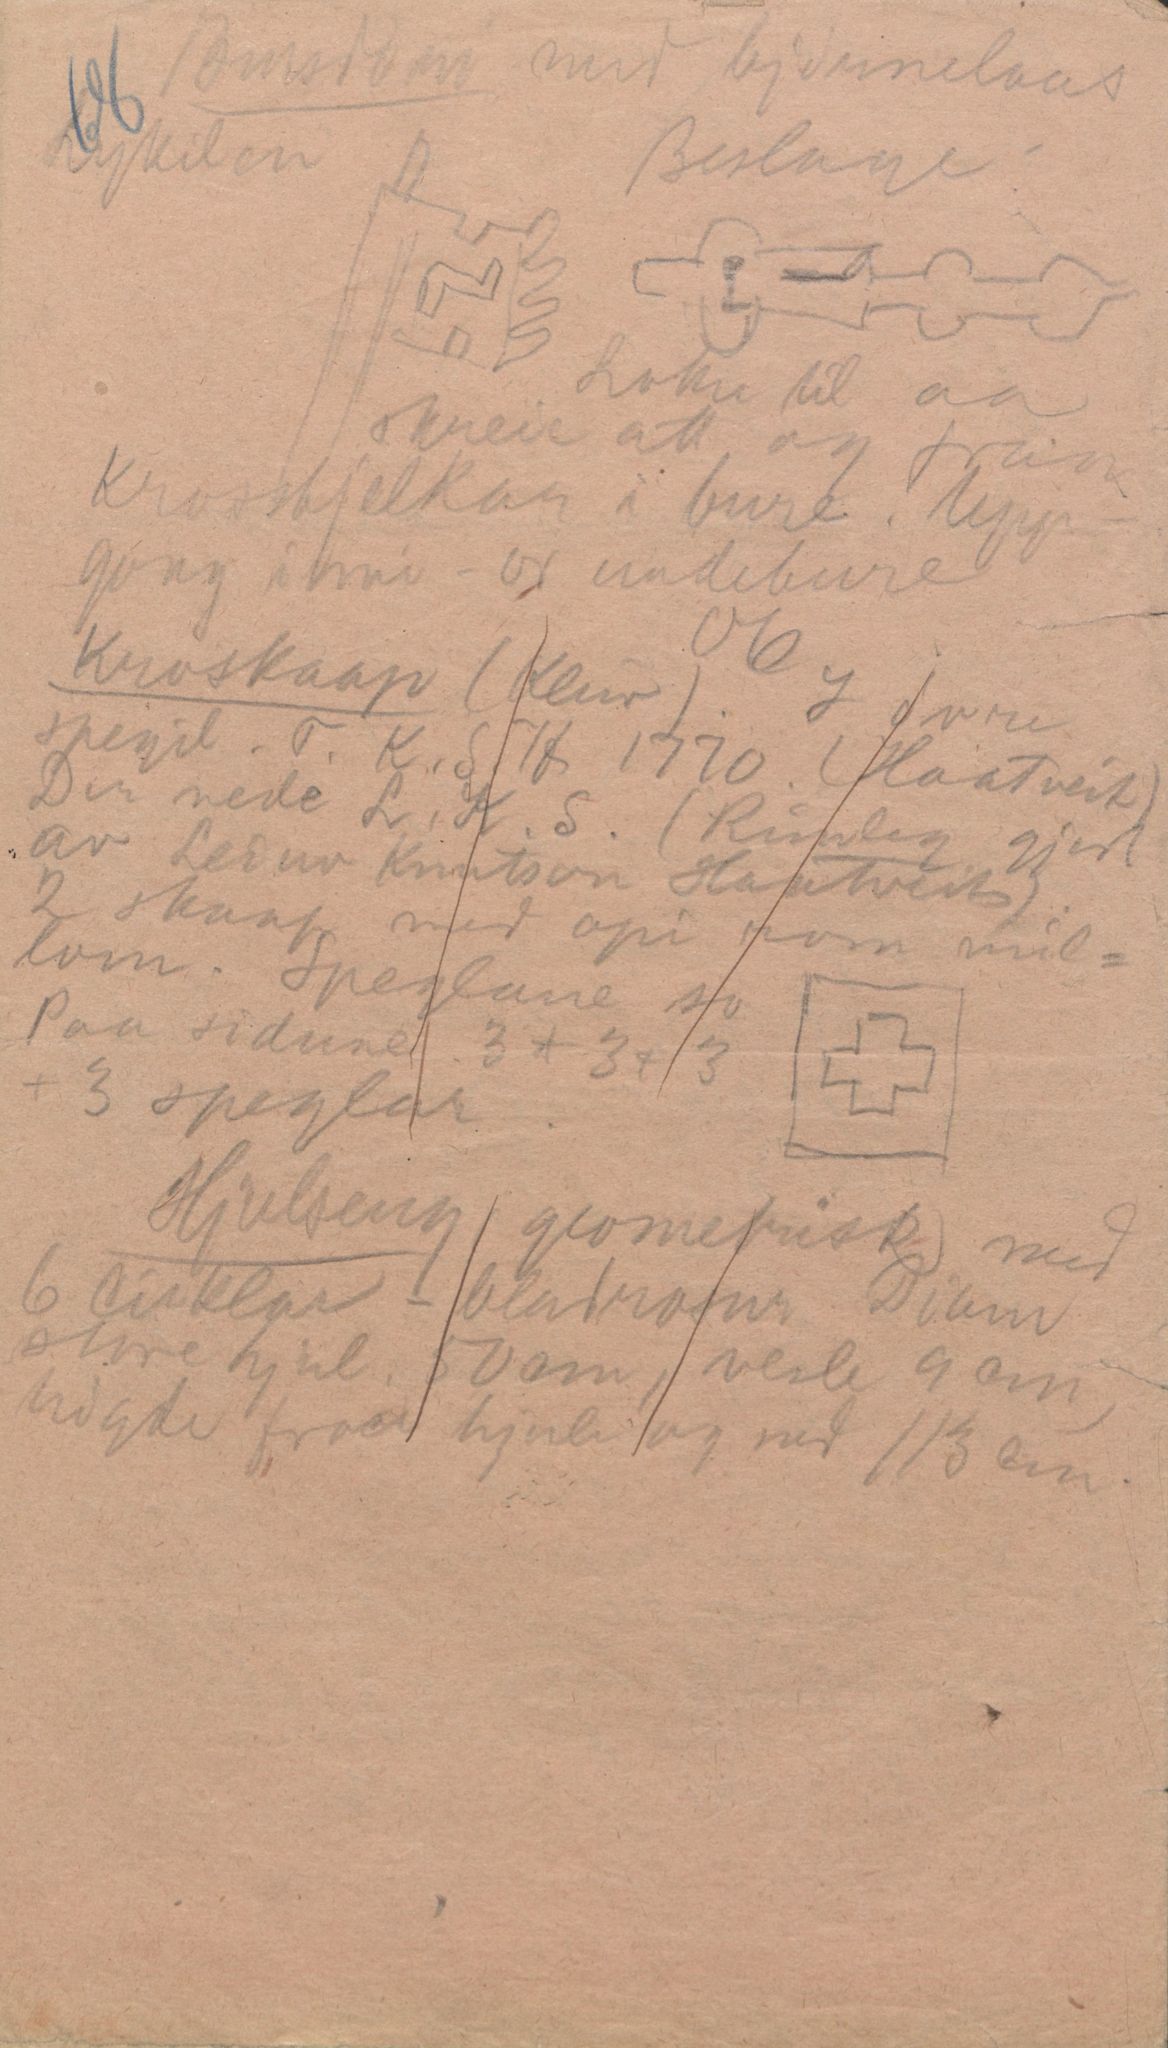 126
Bursdøri med bjørnelaas
Lykilen Beslage:
Loku til aa
skreie att og fram
Krossbjelkar i bure. Upp-
gong inni - or undebure
Kroskaap (Kleiv). I øvre
spegil. T. K. S. H 1770. (Haatveit)
Der nede L. K. S. (Rimeleg gjort
av Leiuv Knutson Haatveit).
2 skaap med opi rom mil=
lom. Speglane so
Paa sidune 3 + 3 + 3
+ 3 speglar.
Hjulseng geometrisk med
6 cirklar - bladrosur Diam
store hjul. 50 cm, vesle 9 cm,
høgde fraa hjule og ned 113 cm.